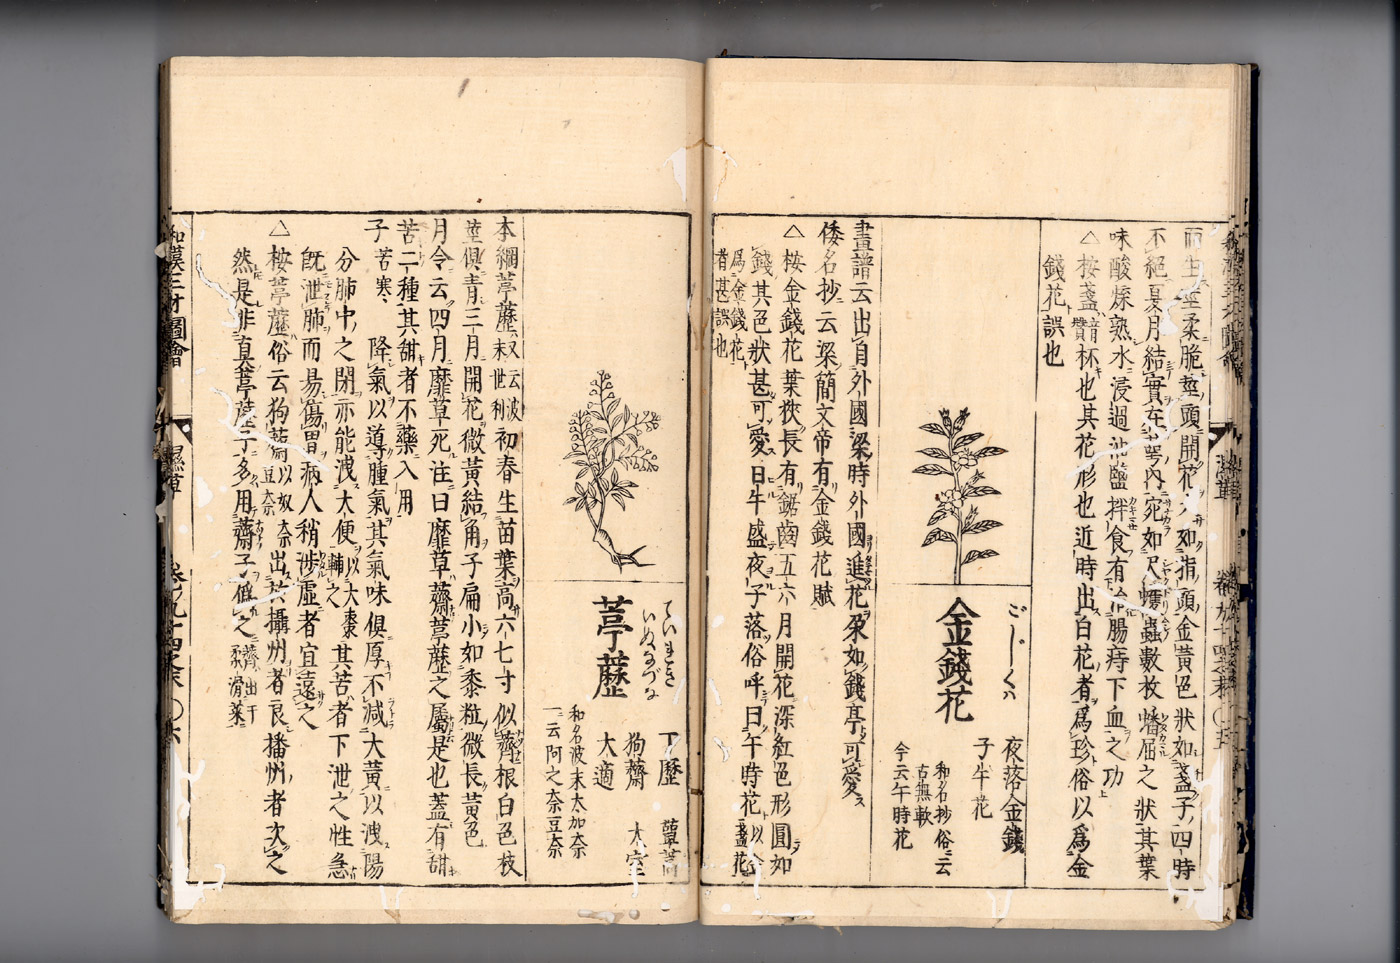 而生莖柔脆莖頭開花大如指頭金黃色狀如盞子四時
不絕夏月結實在萼內宛如尺蠖蟲數枚蟠屈之狀其葉
味酸燥熟水浸過油鹽拌食有治腸痔下血之功
△按盞音賛杯也其花形也近時出白花者爲珍俗以爲金
錢花誤也
ごじくハ
金錢花
夜落金錢
子午花
和名抄俗云
古無軟
今云午時花
畫譜云出自外國梁時外國進花朶如錢亭可愛
倭名抄云梁簡文帝有金錢花賦
△按金錢花葉狹長有鋸齒五六月開花深紅色形圓如
錢其色狀甚可愛日午盛夜子落俗呼曰午時花以盞花
爲金錢花
者甚誤也
ていれき
いぬなづな
葶藶
丁歷 蕈蒿
狗薺 大室
大適
和名波末太加奈
一云阿之奈豆奈
本綱葶藶 初春生苗葉高六七寸似薺根白色枝
莖俱青三月開花微黃結角子扁小如黍粒微長黃色
月令云四月靡草死注曰靡草薺葶藶之屬是也蓋有甜
苦二種其甜者不藥入用
子苦寒 降氣以導腫氣其氣味俱厚不減大黃以洩陽
分肺中之閉亦能洩大便以大棗輔之其苦者下泄之性急
既泄肺而易傷胃病人稍涉虛者宜遠之
△按葶藶俗云狗薺 出於攝州者良播州者次之
然是非真葶藶子多用薺子僞之
和漢三才圖會 濕草 卷九十四之末 〇六